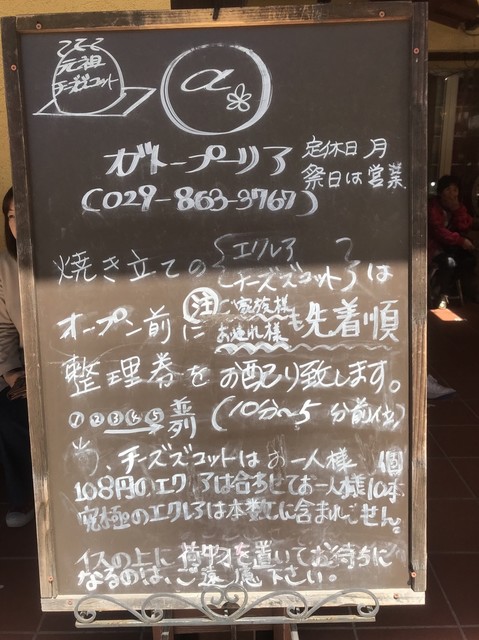 元祖
チーズズコット
α
ガトープーリア
定休日 月
祭日は営業
(029-863-3767)
焼き立ての{エクレア チーズズコット}は
オープン前に 注 ご家族様 お連れ様 も先着順
整理券をお配り致します。
①②③④⑤ 並列 (10分～5分前位)
、チーズズコットはお一人様 個
108円のエクレアは合わせてお一人様10本
究極のエクレアは本数に含まれません。
イスの上に荷物を置いてお待ちに
なるのは、ご遠慮下さい。